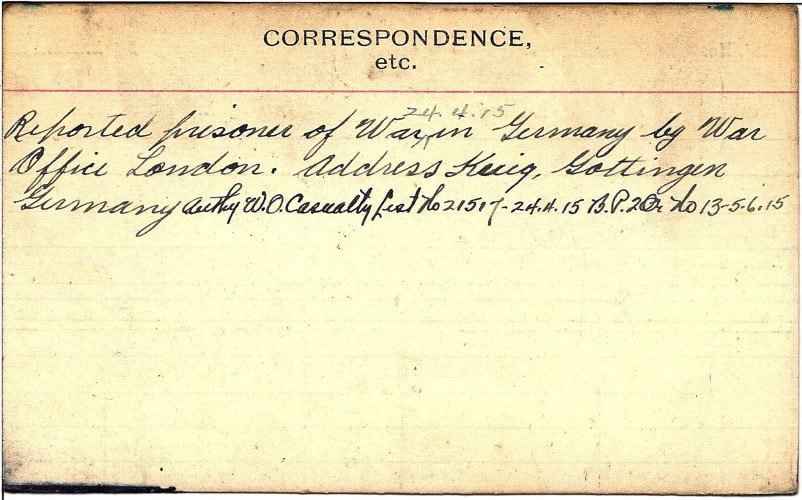 CORRESPONDENCE,
etc.
24.4.15
Reported prisoner of War in Germany by War
Office London. Address Gottingen
Germany Authy W.O. Casualty List No 21517-24.4.15 B.P. 2 Or No 13-5.6.15